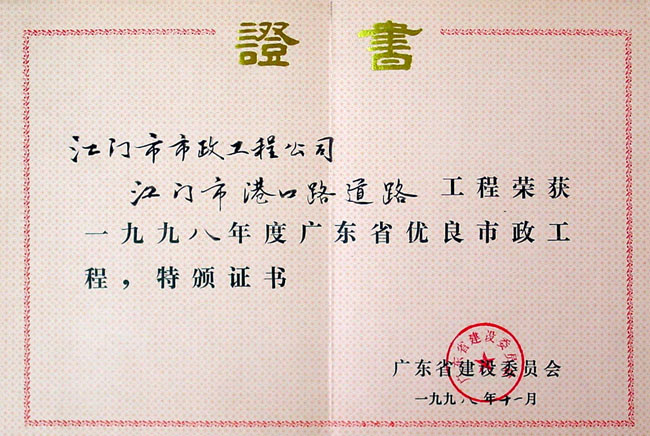 證書
江门市市政工程公司
江门市港口路道路工程荣获
一九九八年度广东省优良市政工
程，特颁证书
广东省建设委员会
一九九八年十一月
广东省建设委员会